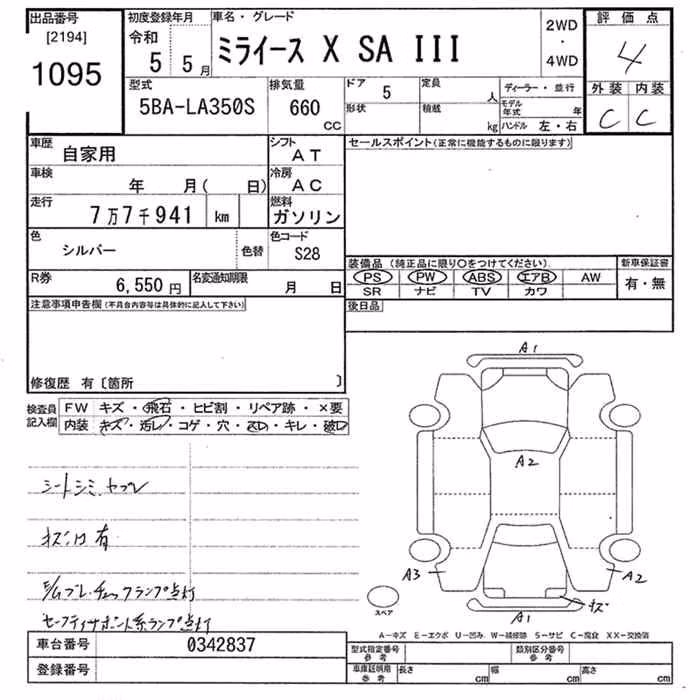 出品番号
[2194]
1095
初度登録年月
令和 5年 5月
車名・グレード
ミライース X SA III
2WD
・
4WD
評価点
4
外装 内装
C C
型式
5BA-LA350S
排気量
660 CC
ドア 5
形状
定員 人
積載 kg
ディーラー・並行
モデル年式 年
ハンドル 左・右
車歴
自家用
シフト
AT
車検
年 月( 日)
冷房
AC
走行
7万7千941 km
燃料
ガソリン
色
シルバー
色替
色コード
S28
R券
6,550円
名変通知期限
月 日
セールスポイント(正常に機能するものに限ります)
装備品(純正品に限り○をつけてください)
PS PW ABS エアB AW
SR ナビ TV カワ
新車保証書
有・無
後日品
注意事項申告欄(不具合内容等は具体的に記入して下さい)
修復歴 有〔箇所 〕
検査員記入欄
FW キズ・飛石・ヒビ割・リペア跡・×要
内装 キズ・汚レ・コゲ・穴・スレ・キレ・破レ
シートシミ、ヤブレ
キズ凹有
チェックランプ点灯
系ランプ点灯
A1
A2
A3
A2
A1
キズ
スペア
A-キズ E-エクボ U-凹み W-補修跡 S-サビ C-腐食 XX-交換済
車台番号
0342837
登録番号
型式指定番号
参考
類別区分番号
参考
車庫証明用
参考
長さ cm
幅 cm
高さ cm